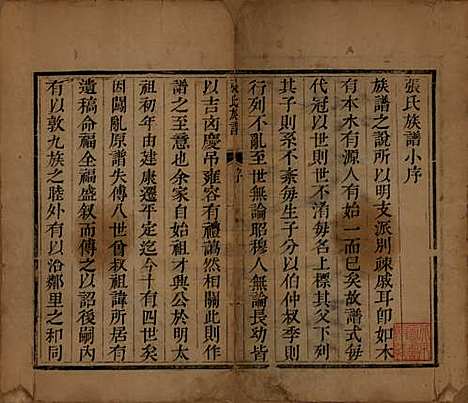 張氏族譜小序
族譜之說所以明支派别疎戚耳卽如木
有本水有源人有始一而已矣故譜式每
代冠以世則世不淆每名下註以父下列
其子則系不紊每生子分以伯仲叔季則
行列不亂至世無論昭穆人無論長幼皆
張氏族譜 序
以吉凶慶弔雍容有禮藹然相關此則作
譜之至意也余家自始祖才興公於明太
祖初年由建康遷平定迄今十有四世矣
因闖亂原譜失傳八世曾叔祖諱所居有
遺稿命福全福盛叙而傳之以詔後嗣内
有以敦九族之睦外有以洽鄰里之和同